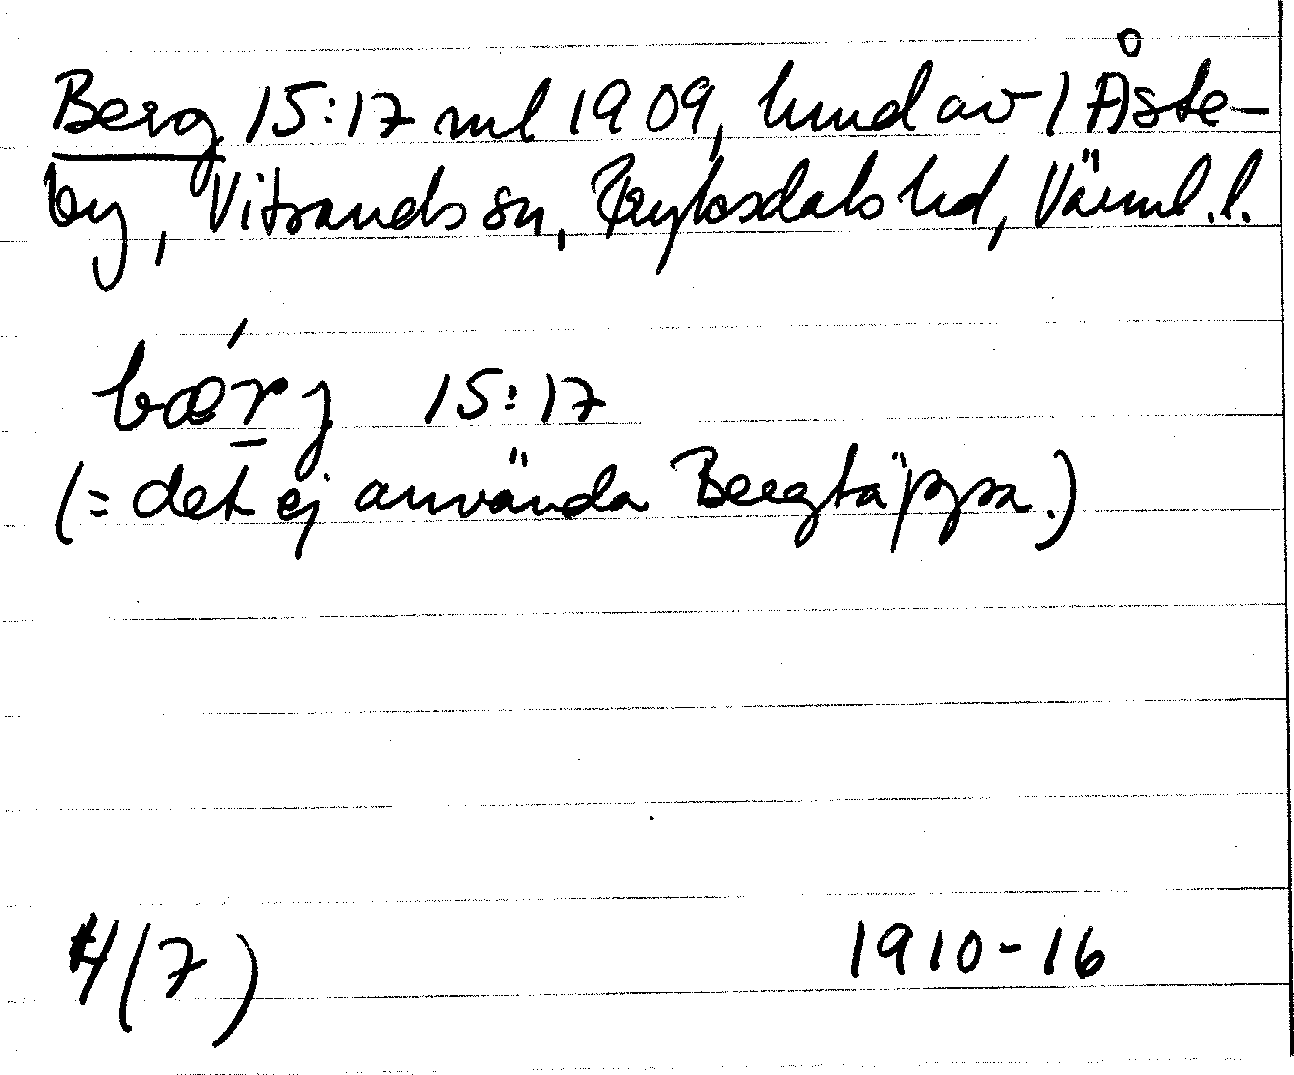 Berg 15:17 ml 1909, hmd av 1 Åste-
by, Vitsands sn, Fryksdals hd, Värml. l.
bærj 15:17
(= det ej använda Bergtäppa.)
4(7)
1910-16